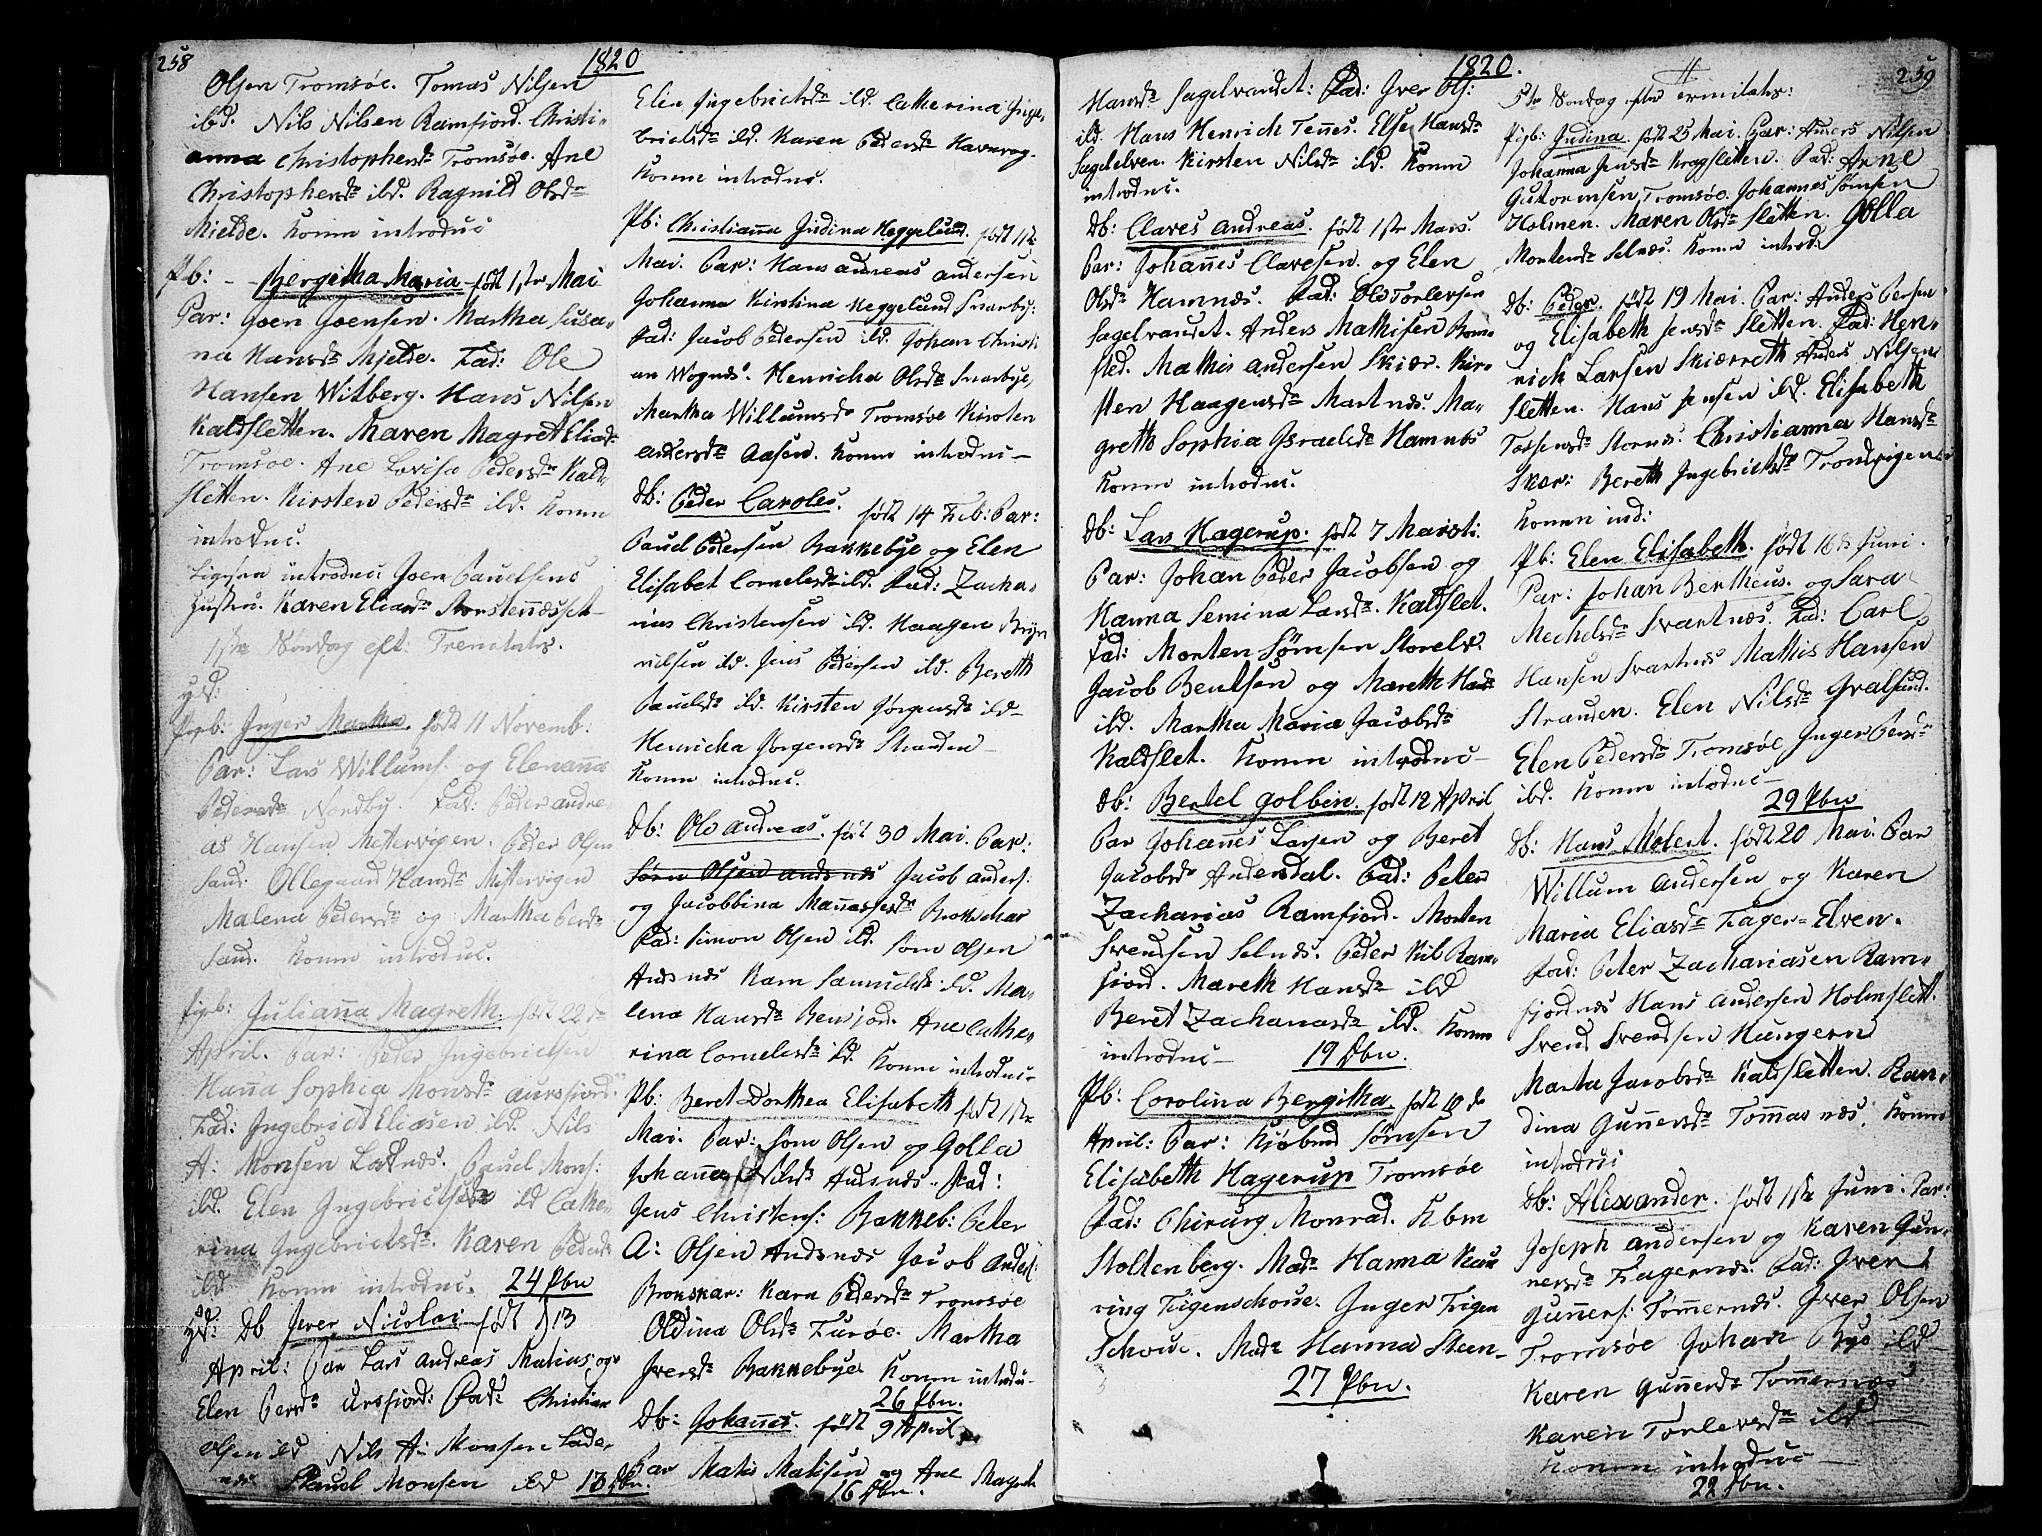 258
1820
Olsen Tromsøe. Tomas Nilsen
ibd. Nils Nilsen Ramfiord. Christi=
anna Christophersdr Tromsøe. Ane
Christophersdr ibd. Ragnild Olsdr
Mielde. Konen introduc
Pb: Bergitha Maria født 1ste Mai
Par: Joen Joensen. Martha Susa=
na Hansdr Mjelde. Fad: Ole
Hansen Witberg. Hans Nilsen
Kaldsletten. Maren Magret Eliasdr
Tromsoe. Ane Lovise Pedersdr Kald=
sletten. Kirsten Pedersdr ibd. Konen
introduc.
Ligesaa introduc Joen Pauelsens
Hustru. Karen Eliasdr Storstennæsset
1ste Søndag eft: Trenitatis.
Pigb: Inger Martha. født 11 Novemb:
Par: Lars Willums. og Elenanna
Pedersdr Nordby. Fad: Peder Andre=
as Hansen Mettervigen. Peder Olsen
Sand. Ollegaard Hansdr Mittervigen
Malena Pedersdr og Martha Persdr
Sand. Konen introduc.
Pigb: Julianna Magreth. født 22de
April. Par: Peder Ingebrictsen
Hanna Sophia Monsdr Aursfiord.
Fad: Ingebrict Eliasen ibd. Nils
A: Monsen Ladnæs. Pauel Mons:
ibd. Elen Ingebrictsdr ibd Cathe=
rina Ingebrictsdr. Karen Pedersdr
ibd Konen introduc. 24 Pbn
Db Iver Nicolai født D 13
April: Par Lars Andreas Matiusen og
Elen Persdr Ursfjord: Fad: Christian
Olsen ibd Nils A: Monsen Lade=
næs Pauel Monsen ibd 13 Pbn.
Elen Ingebrictsdr ibd. Catherina Inge=
brictsdr ibd Karen Pedersdr Havnvog.
Konen introduc.
Pb: Christianna Judina Heggelund. født 11te
Mai. Par: Hans Andreas Andersen
Johanna Kirstina Heggelund Snarby:
Fad: Jacob Pedersen ibd. Johan Christi
an Wognæs. Henricha Olsdr Snarbye,
Martha Willumsdr Tromsøe Kirsten
Andersdr Aasen. Konen introduc—
Db: Peder Caroles. født 14 Feb: Par:
Pauel Pedersen Bakkebye og Elen
Elisabet Cornelesdr ibd. Fad: Zacha=
rias Christensen ibd. Haagen Bryn
nilsen ibd. Jens Pedersen ibd. Bereth
Pauelsdr ibd. Kirsten Jørgensdr ibd—
Henricha Jørgensdr Stranden—
Konen introduc.
Db: Ole Andreas. født 30 Mai. Par:
Sørn Olsen Andsnæs Jacob Anders:
og Jacobbina Manassesdr Brokskar
Fad: Simon Olsen ibd. Sørn Olsen
Andsnæs Karn Samuelsdr ibd. Ma=
lena Hansdr Bensjord. Ane Cathe=
rina Cornelesdr ibd. Konen introduc.
Pb: Beret Dorthea Elisabeth født 1ste
Mai. Par: Sørn Olsen og Golla
Johanna Nilsdr Andsnæs. Fad:
Jens Christens: Bakkeb: Peter
A: Olsen Andsnæs Jacob Anders:
Brokskar: Karn Pedersdr Tromsøe
Oldina Olsdr Furøe. Martha
Iversdr Bakkebye Konen introdu—
26 Pbn.
Db: Johannes. født 9 April
Par Matis Matisen og Ane Magreth
16 Pbn.
1820.
259
Hansdr Sagelvandet: Fad: Iver Ols:
ibd. Hans Henrich Tennes. Else Hansdr
Sagelven. Kirsten Nilsdr ibd. Konen
introduc.
Db: Claves Andreas. født 1ste Mars.
Par: Johannes Clavesen. og Elen
Olsdr Hamnæs. Fad: Ole Torlevsen
Sagelvandet. Anders Mathisen Bom=
sted. Mathis Andersen Skiær. Kir=
sten Haagensdr Martnæs. Ma=
greth Sophia Israelsdr Hamnæs
Konen introduc.
Db: Lars Hagerup. født 7 Marsti.
Par: Johan Peder Jacobsen og
Hanna Semina Larsdr. Kaldslet.
Fad: Morten Sørnsen Storelv.
Jacob Bentsen og Mareth Hansdr
ibd. Martha Maria Jacobsdr
Kaldslet. Konen introduc—
Db: Bertel Golbin. født 12 April
Par Johannes Larsen og Beret
Jacobsdr Andersdal. Fad: Peter
Zacharias Ramfjord. Morten
Svendsen Selnæs. Peder Kil Ram=
fiord. Mareth Hansdr ibd
Beret Zachariasdr ibd. Konen
introduc— 19 Pbn.
Pb: Carolina Bergitha. født 10de
April: Par: Kiøbmd Sørnsen
Elisabeth Hagerup Tromsøe
Fad: Chirurg Monrad. Kbm
Stoltenberg. Mad: Hanna Kau
ring Figenschoue. Inger Figen
Schoue. Mad: Hanna Steen—
27 Pbn.
5te Søndag efter Trenitatis:
Pigb: Judina født 25 Mai. Par: Anders Nilsen
Johanna Jensdr Kragsletten. Fad: Arne
Gutormsen Tromsøe. Johannes Sørnsen
Holmen. Maren Olsdr Sletten. Golla
Mortensdr Selnæs. Konen introd.
Db: Peder. født 19 Mai. Par: Anders Persen
og Elisabeth Jensdr Sletten. Fad: Hen=
rich Larsen Skiærreth Anders Nilsen
Sletten. Hans Jensen ibd. Elisabeth
Tostensdr Stornæs. Christianna Hansdr
Skar: Bereth Ingebrictsdr Tromvigen
Konen ind:
Pb: Elen Elisabeth. født 16de Juni.
Par: Johan Bertheus. og Sara
Mechelsdr Svartnæs. Fad: Carl
Hansen Svartnæs Mathis Hansen
Stranden. Elen Nilsdr Qvalsund.
Elen Pedersdr Tromsøe Inger Persdr
ibd. Konen introduc—
29 Pbn
Db: Hans Molert. født 20 Mai. Par
Willum Andersen og Karen
Maria Eliasdr Fager=Elven.
Fad: Peter Zachariasen Ram=
fjordnæs Hans Andersen Holmslett.
Svend Svendsen Hungern
Marta Jacobsdr Kaldsletten. Ran=
dina Gunnersdr Tommasnæs. Konen
introduc
Db: Alixander. født 1ste Juni. Par:
Joseph Andersen og Karen Gun=
nersdr Fagernæs. Fad: Iver
Gunners: Tommernæs. Iver Olsen
Tromsøe Johan Bye ibd
Karen Gunnersdr Tommernæs
Karen Torlevsdr ibd
Konen introduc—
22 Pbn.